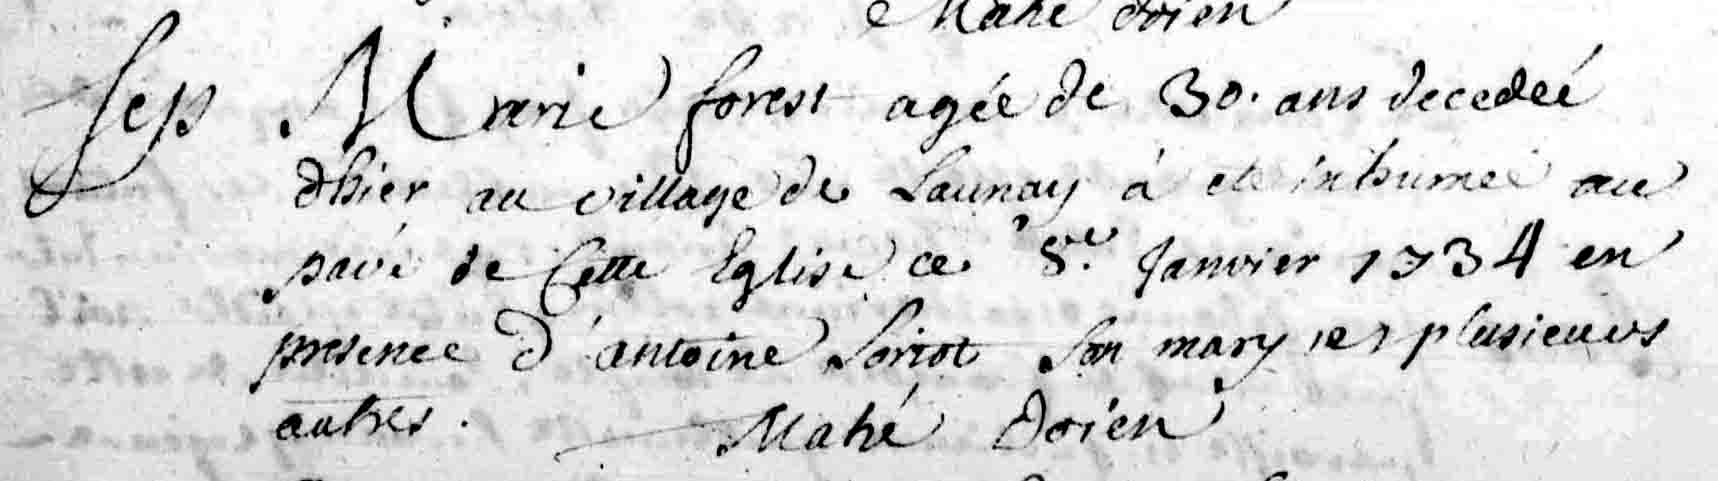 Mahé doien
Sep Marie forest agée de 30. ans decedeé
dhier au village de Launay à eté inhumeé au
pavé de Cette Eglise ce 8.e Janvier 1734 en
presence d'antoine Loriot son mary et plusieurs
autres. Mahé Doien